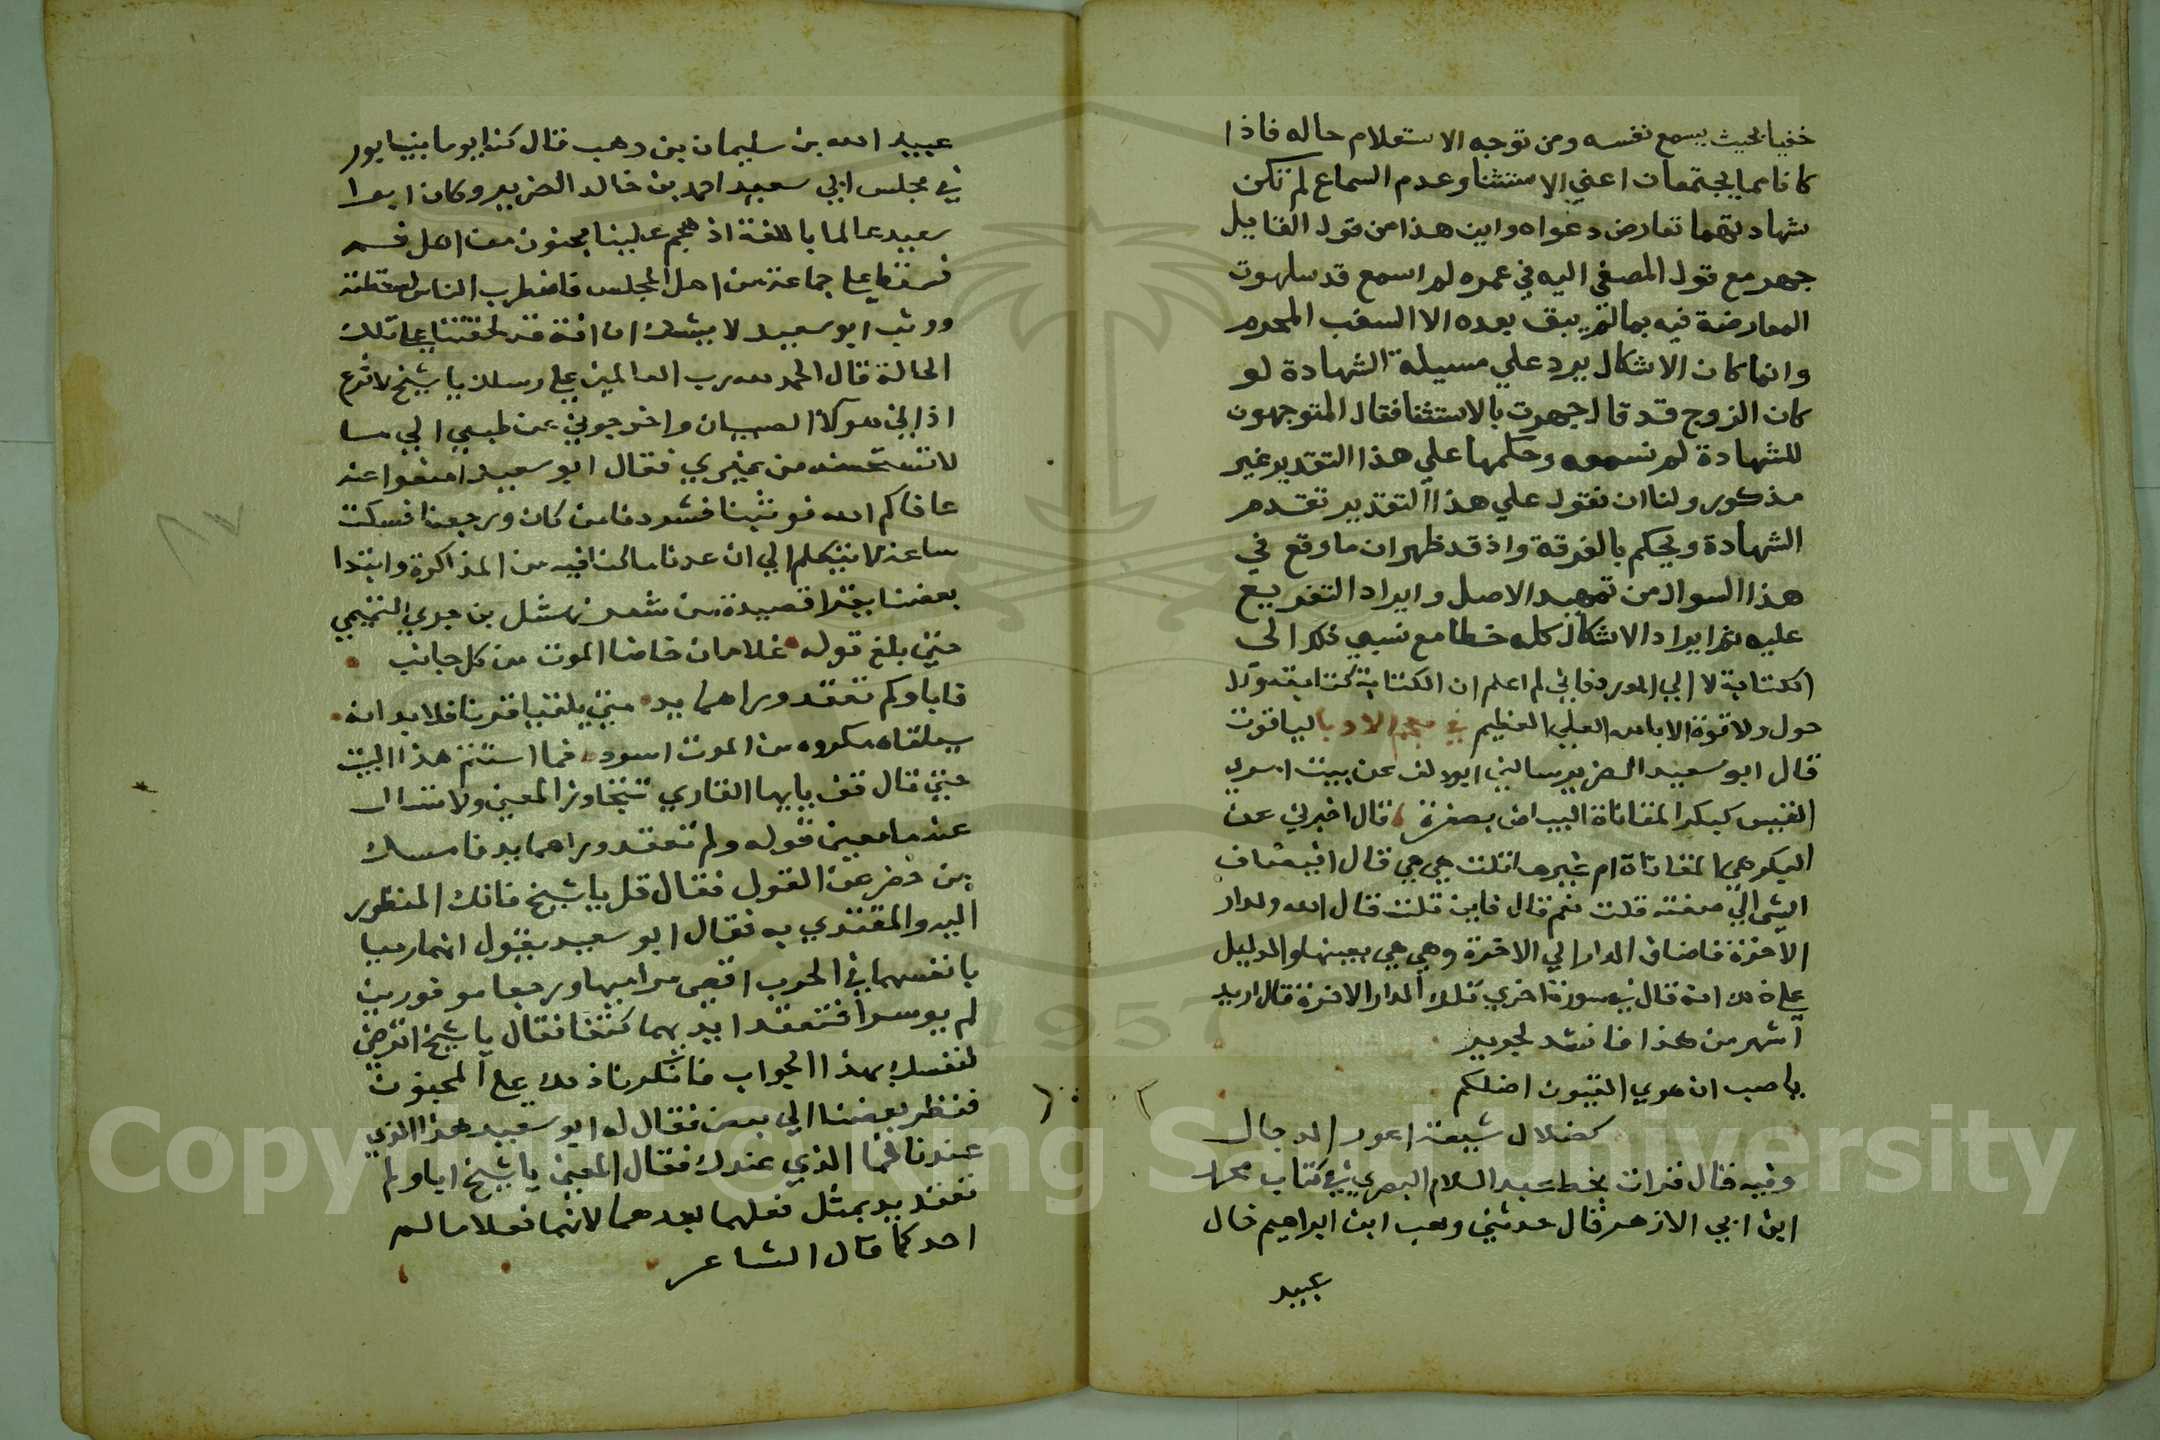 خفيا بحيث يسمع نفسه ومن توجه الاستعلام حاله فاذا
كانا مما يجتمعان اعني الاستثنا وعدم السماع لم تكن
شهادتهما تعارض دعواه واين هذا من قول القايل
جهر مع قول المصغي اليه في عمره لم اسمع قد سلهوت
المعارضة فيه بما لم يبق بعده الا السغب المحرم
وانما كان الاشكال يرد علي مسيلة الشهادة لو
كان الزوج قد قال جهرت بالاستثنا فقال المتوجهون
للشهادة لم نسمعه وحكمها علي هذا التقدير غير
مذكور ولنا ان نقول علي هذا التقدير تقدم
الشهادة ويحكم بالفرقة واذ قد ظهر ان ما وقع في
هذا السوال من تمهيد الاصل وايراد التفريع
عليه ثم ايراد الاشكال كله خطا مع شيي فكر الي
الكتابة لا الي المورد فاني لم اعلم ان الكتابة كتابة
حول ولا قوة الا بالله العلي العظيم في معجم الادبا لياقوت
قال ابو سعيد الضرير سالني ابو دلف عن بيت امري
القيس كبكر المقاناة البياض بصفرة قال اخبرني عن
البكر هي المقاناة ام غيرها قلت هي هي قال افيضاف
الشي الي صفته قلت نعم قال فاين قلت قال الله ولدار
الاخرة فاضاف الدار الي الاخرة وهي هي بعينها والدليل
علي ذلك انه قال في سورة اخري تلك الدار الاخرة قال اريد
اشهر من هذا فانشد لجرير
يا صب ان هوي القيون اضلكم
كضلال شيعة اعور الدجال
وفيه قال قرات بخط عبد السلام البصري في كتاب محمد
ابن ابي الازهر قال حدثني وهب ابن ابراهيم خال
عبيد
عبيد الله بن سليمان بن وهب قال كنا يوما بنيسابور
في مجلس ابي سعيد احمد بن خالد الضرير وكان ابو
سعيد عالما باللغة اذ هجم علينا مجنون من اهل قم
فسقط علي جماعة من اهل المجلس فاضطرب الناس لسقطته
ووثب ابو سعيد لا يشك ان افة قد لحقتنا علي تلك
الحالة قال الحمد لله رب العالمين علي رسلك يا شيخ لا ترع
اذاني هولاء الصبيان واخرجوني عن طبعي الي ما
لا استحسنه من غيري فقال ابو سعيد امنعوا عنه
عافاكم الله فوثبنا فشردنا من كان ورجعنا فسكت
ساعة لا يتكلم الي ان عدنا ما كنا فيه من المذاكرة وابتدا
بعضنا يقرا قصيدة من شعر نهشل بن جري التميمي
حتي بلغ قوله غلامان خاضا الموت من كل جانب
فابا ولم تعقد وراهما يد متي يلقيا قرنا فلا بد انه
سيلقاه مكروه من الموت اسود فما استتم هذا البيت
حتي قال قف يا ايها القاري تتجاوز المعني ولا تسال
عنه ما معني قوله ولم تعقد وراهما يد فامسك
من حضر عن القول فقال قل يا شيخ فانك المنظور
اليه والمقتدي به فقال ابو سعيد يقول انهما رميا
بانفسهما في الحرب اقصي مراميها ورجعا موفورين
لم يوسرا فتعقد ايديهما كتفا فقال يا شيخ اترضي
لنفسك بهذا الجواب فانكرنا ذلك علي المجنون
فنظر بعضنا الي بعض فقال له ابو سعيد هذا الذي
عندنا فما الذي عندك فقال المعني يا شيخ ابا ولم
تعقد يد بمثل فعلهما بعدهما لانهما فعلا ما لم
احد كما قال الشاعر
Copyright © King Saud University
1957